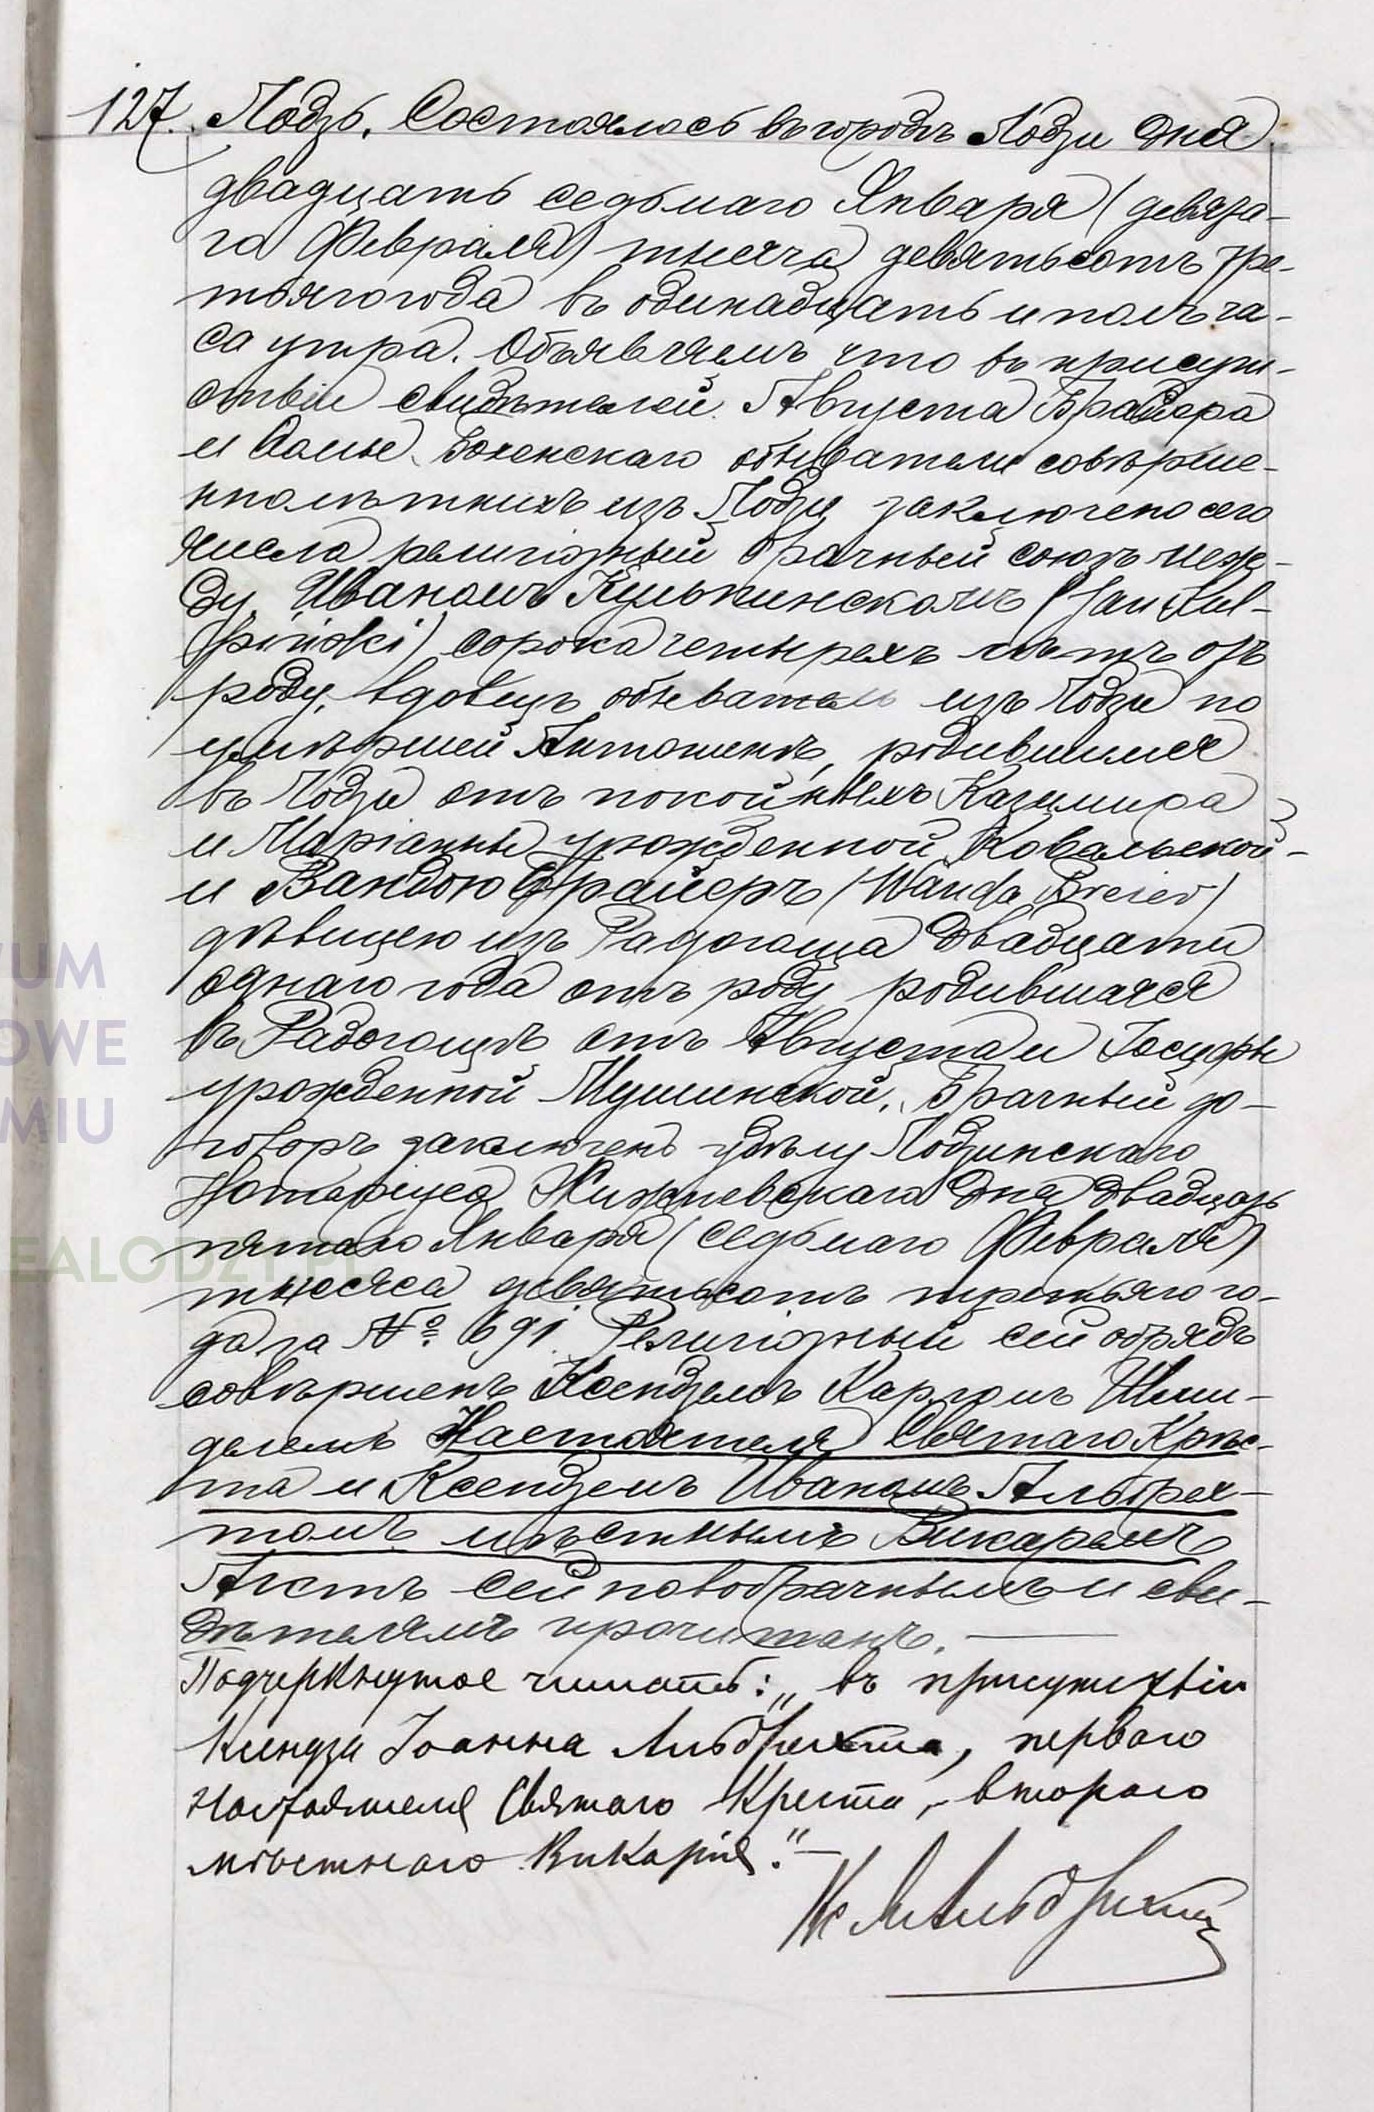 127. Лодзь. Состоялось въ городѣ Лодзи дня
двадцать седьмаго Января (девята-
го Февраля) тысяча девятьсотъ тре-
тьяго года въ одинадцать и полъ ча-
са утра. Объявляемъ что въ присут-
ствіи свидѣтелей Августа Брайера
и обывателей совѣрше-
ннолѣтнихъ изъ Лодзи заключено сего
числа религіозный брачный союзъ меж-
ду Иваномъ Кульпинскомъ (Jan Kul-
piński) сорока четырехъ лѣтъ отъ
роду, вдовецъ обыватель изъ Лодзи по
умѣршей Антонинѣ, родившимся
въ Лодзи отъ покойныхъ Казимира
и Маріанны урожденной Ковальской-
и Вандою Брайеръ (Wanda Breier)
дѣвицею изъ Радогоща двадцати
однаго года отъ роду родившаяся
въ Радогощѣ отъ Августа и Юзефы
урожденной Мушинской. Брачный до-
говоръ заключенъ удѣлу Лодзинскаго
Нотаріуса дня двадцать
пятаго Января (седьмаго Февраля)
тысяса девятьсотъ третьяго го-
да за № 691. Религіозный сей обрядъ
совѣршенъ Ксендземъ Карломъ Шми-
делемъ Настоятеля Святаго Крес-
та и Ксендземъ Иваномъ Альбрех-
томъ мѣстнымъ Викаремъ
Актъ сей новобрачнымъ и сви-
дѣтелямъ прочитанъ. —
Подчеркнутое читать: „въ присутствіи
Ксендза Іоанна Альбрехта, перваго
настоятеля Святаго Креста, втораго
мѣстнаго Викарія." —
Кс Альбрехтъ